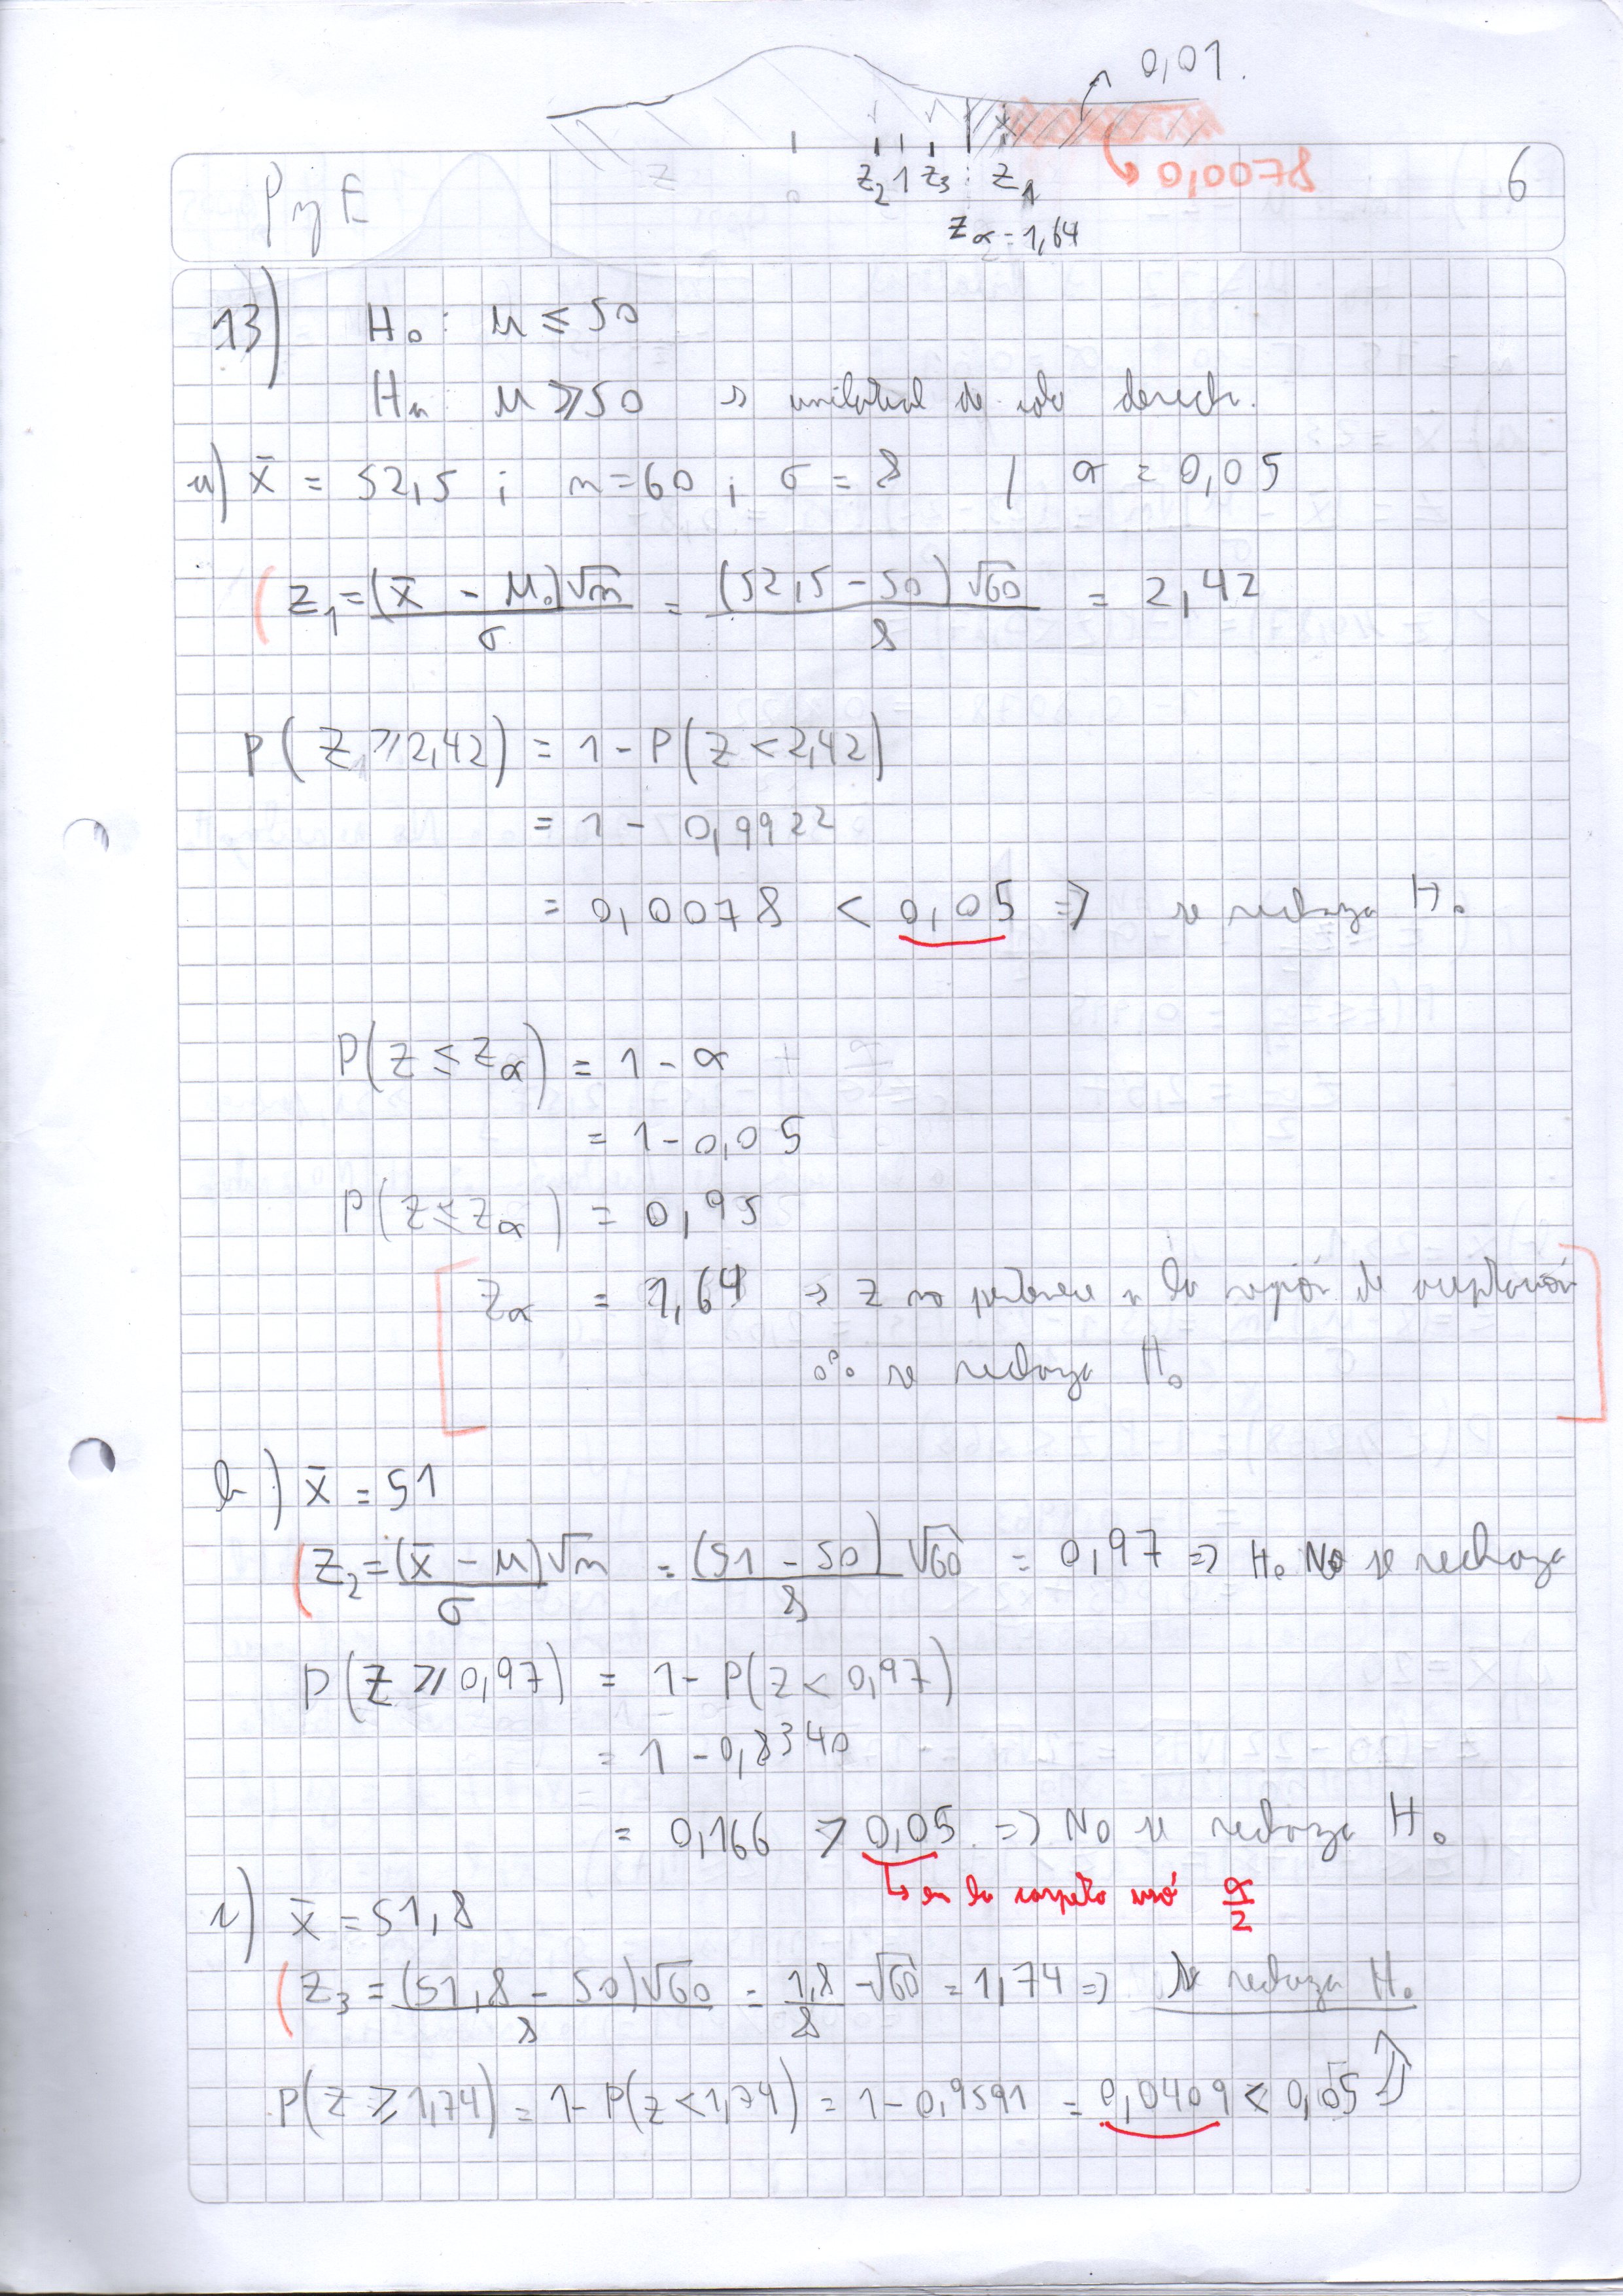 0,01.
z₂ 1 z₃ z₁
0,0078
zα = 1,64
P y E
6
13) H₀: μ ≤ 50
Hₐ: μ ⩾ 50 → unilateral de cola derecha.
a) x̄ = 52,5 ; n = 60 ; σ = 8 / α = 0,05
z₁ = (x̄ - μ₀)√n / σ = (52,5 - 50)√60 / 8 = 2,42
P(Z₁ ⩾ 2,42) = 1 - P(Z < 2,42)
= 1 - 0,9922
= 0,0078 < 0,05 ⇒ se rechaza H₀
P(z ≤ zα) = 1 - α
= 1 - 0,05
P(z ≤ zα) = 0,95
zα = 1,64 → z no pertenece a la región de aceptación
∴ se rechaza H₀
b) x̄ = 51
z₂ = (x̄ - μ)√n / σ = (51 - 50)√60 / 8 = 0,97 ⇒ H₀ No se rechaza
P(Z ⩾ 0,97) = 1 - P(z < 0,97)
= 1 - 0,8340
= 0,166 > 0,05 ⇒ No se rechaza H₀
↳ en la carpeta usó α/2
c) x̄ = 51,8
z₃ = (51,8 - 50)√60 / 8 = 1,8/8 - √60 = 1,74 ⇒ Se rechaza H₀
P(Z ⩾ 1,74) = 1 - P(z < 1,74) = 1 - 0,9591 = 0,0409 < 0,05 ⇒